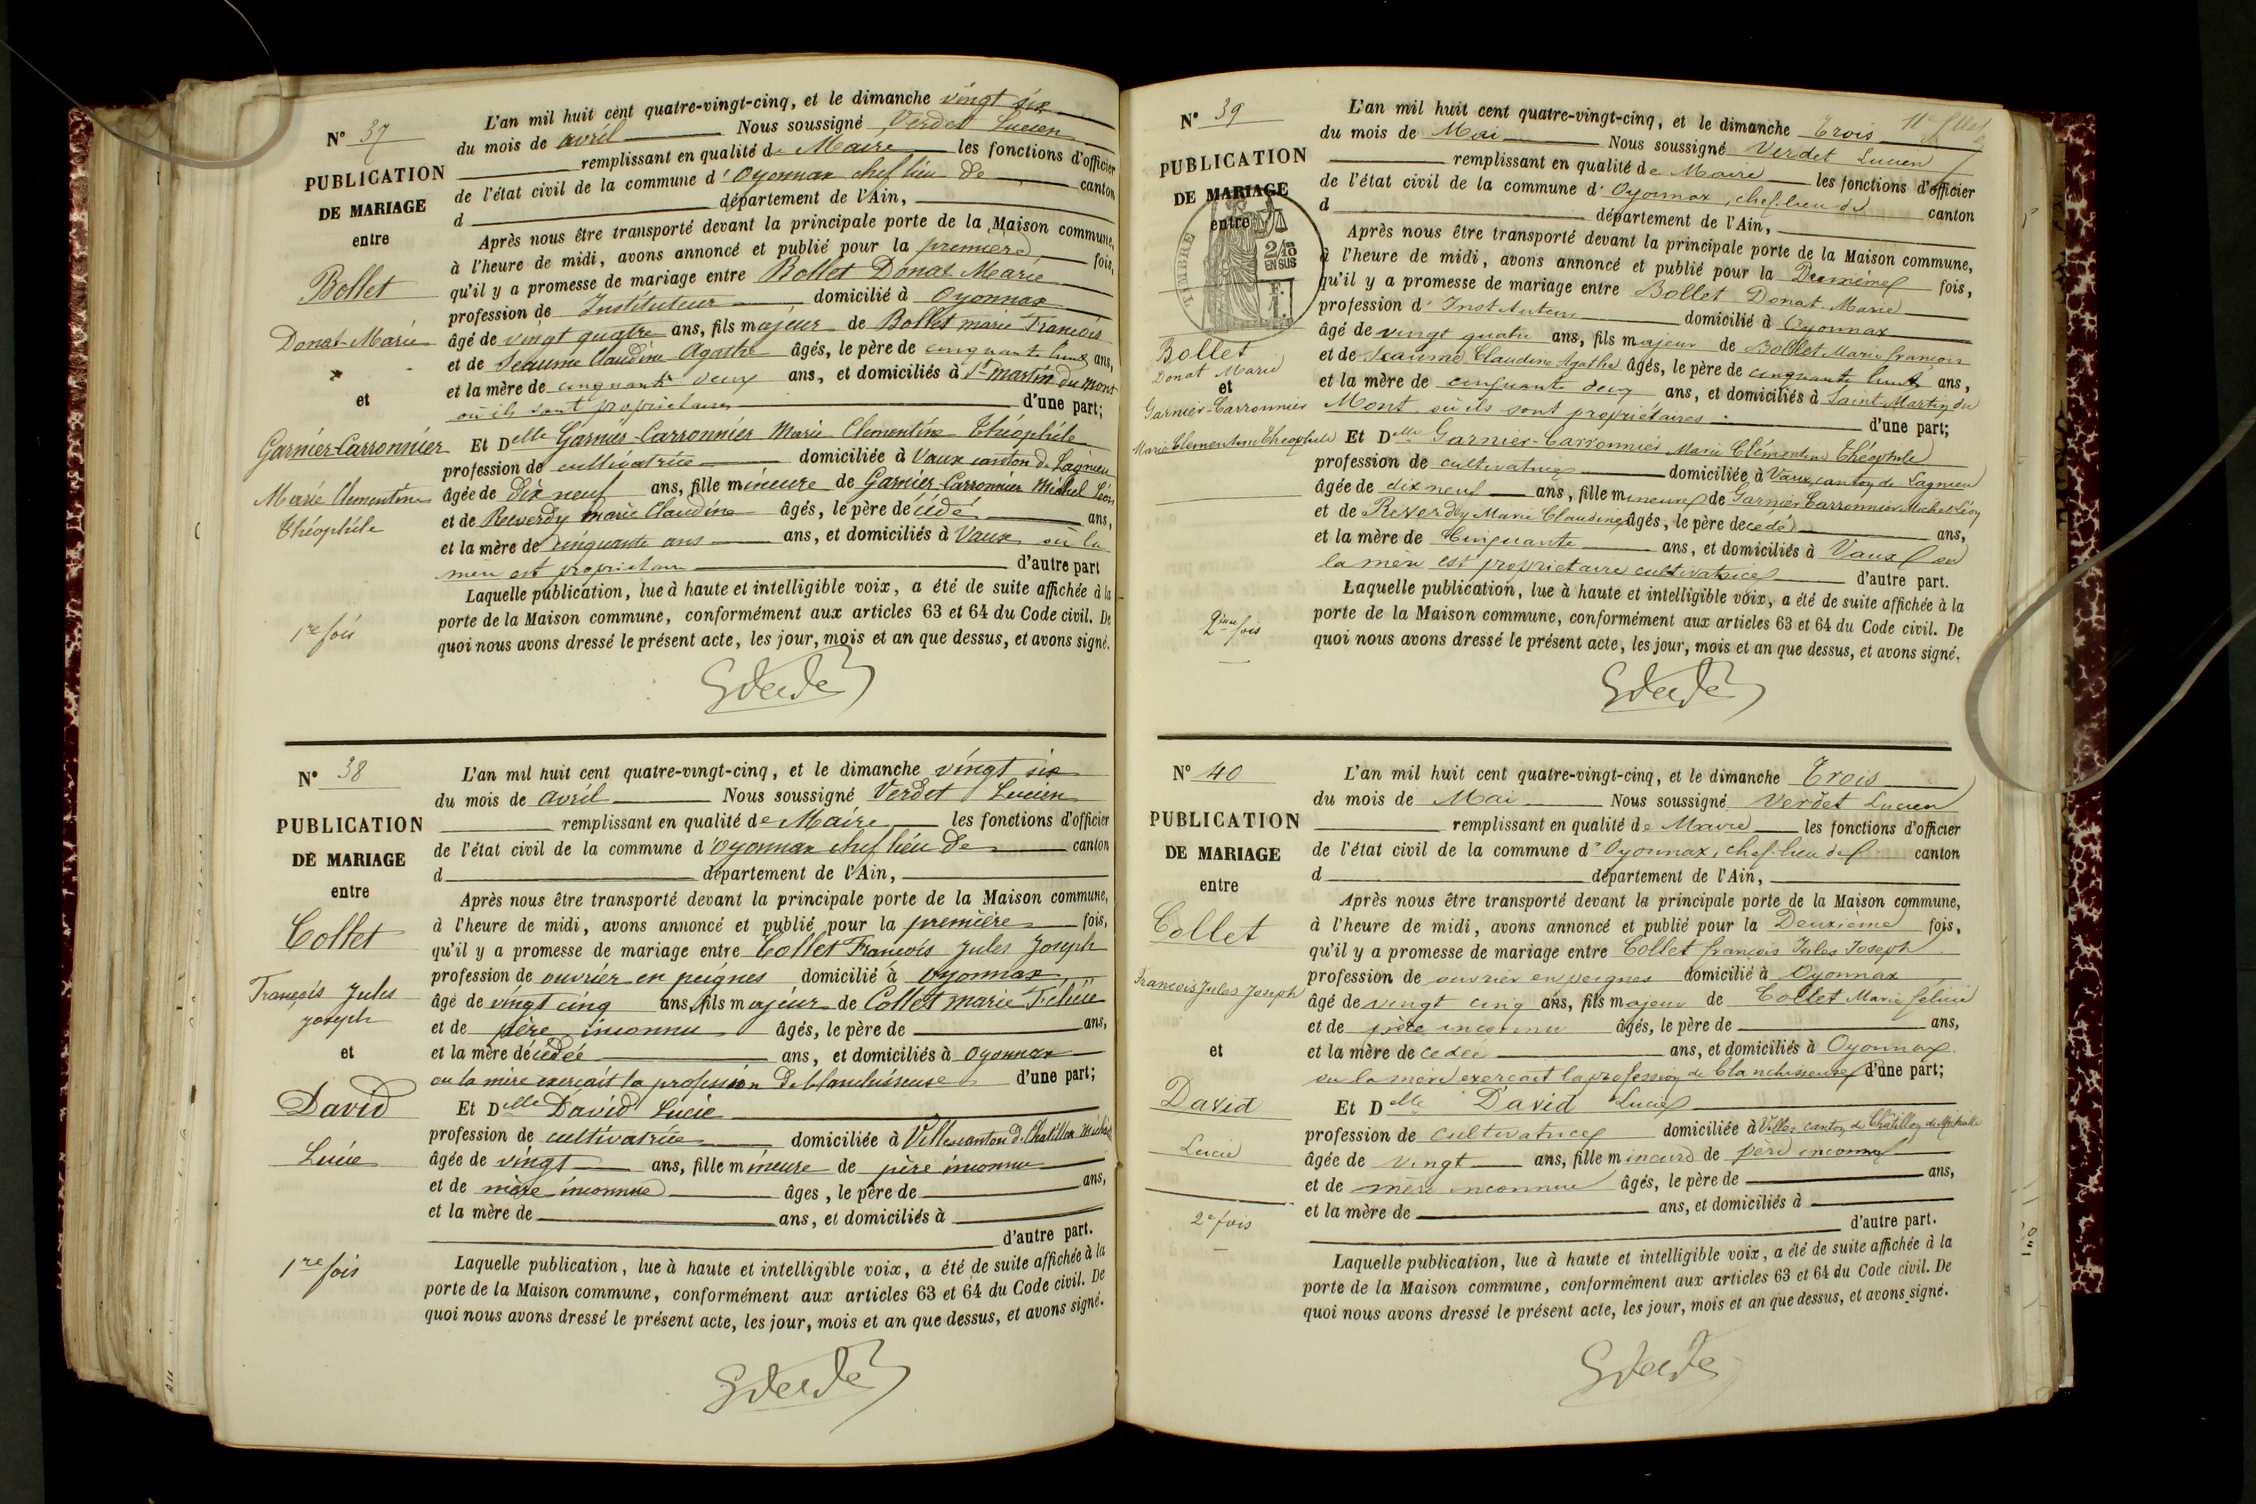 N° 37
PUBLICATION
DE MARIAGE
entre
Bollet
Donat-Marie
et
Garnier-Carronnier
Marie Clementine
théophile
1re fois
L'an mil huit cent quatre-vingt-cinq, et le dimanche vingt six
du mois de avril Nous soussigné Verdet Lucien
remplissant en qualité de Maire les fonctions d'officier
de l'état civil de la commune d'Oyonnax chef lieu de canton
d département de l'Ain,
Après nous être transporté devant la principale porte de la Maison commune,
à l'heure de midi, avons annoncé et publié pour la première fois,
qu'il y a promesse de mariage entre Bollet Donat Marie
profession de Instituteur domicilié à Oyonnax
âgé de vingt quatre ans, fils majeur de Bollet marie François
et de Seaume Claudine Agathe âgés, le père de cinquante huit ans,
et la mère de cinquante deux ans, et domiciliés à St martin du mont
où ils sont propriétaires d'une part;
Et Delle Garnier-Carronnier Marie Clementine Théophile
profession de cultivatrice domiciliée à Vaux canton de Lagnieu
âgée de dix neuf ans, fille mineure de Garnier-Carronnier Michel Léon
et de Reverdy marie Claudine âgés, le père décédé ans,
et la mère de cinquante ans ans, et domiciliés à Vaux où la
mère est propriétaire d'autre part
Laquelle publication, lue à haute et intelligible voix, a été de suite affichée à la
porte de la Maison commune, conformément aux articles 63 et 64 du Code civil. De
quoi nous avons dressé le présent acte, les jour, mois et an que dessus, et avons signé.
N° 38
PUBLICATION
DE MARIAGE
entre
Collet
François Jules
joseph
et
David
Lucie
1re fois
L'an mil huit cent quatre-vingt-cinq, et le dimanche vingt six
du mois de avril Nous soussigné Verdet Lucien
remplissant en qualité de Maire les fonctions d'officier
de l'état civil de la commune d'oyonnax chef lieu de canton
d département de l'Ain,
Après nous être transporté devant la principale porte de la Maison commune,
à l'heure de midi, avons annoncé et publié pour la première fois,
qu'il y a promesse de mariage entre Collet François Jules Joseph
profession de ouvrier en peignes domicilié à oyonnax
âgé de vingt cinq ans, fils majeur de Collet marie Félicie
et de père inconnu âgés, le père de ans,
et la mère décédée ans, et domiciliés à oyonnax
ou la mère exerçait la profession de blanchisseuse d'une part;
Et Delle David Lucie
profession de cultivatrice domiciliée à Villes canton de Chatillon Michaille
âgée de vingt ans, fille mineure de père inconnu
et de mère inconnue âges, le père de ans,
et la mère de ans, et domiciliés à
d'autre part.
Laquelle publication, lue à haute et intelligible voix, a été de suite affichée à la
porte de la Maison commune, conformément aux articles 63 et 64 du Code civil. De
quoi nous avons dressé le présent acte, les jour, mois et an que dessus, et avons signé.
N° 39
PUBLICATION
DE MARIAGE
entre
TIMBRE
2/10
EN SUS
Bollet
Donat Marie
et
Garnier-Carronnier
Marie Clementine Theophile
2ème fois
L'an mil huit cent quatre-vingt-cinq, et le dimanche Trois
du mois de Mai Nous soussigné Verdet Lucien
remplissant en qualité de Maire les fonctions d'officier
de l'état civil de la commune d'Oyonnax, chef-lieu de canton
d département de l'Ain,
Après nous être transporté devant la principale porte de la Maison commune,
à l'heure de midi, avons annoncé et publié pour la Deuxième fois,
qu'il y a promesse de mariage entre Bollet Donat Marie
profession d'Instituteur domicilié à Oyonnax
âgé de vingt quatre ans, fils majeur de Bollet Marie françois
et de Seaume Claudine Agathe âgés, le père de cinquante huit ans,
et la mère de cinquante deux ans, et domiciliés à Saint Martin du
Mont où ils sont propriétaires d'une part;
Et Delle Garnier-Carronnier Marie Clémentine Théophile
profession de cultivatrice domiciliée à Vaux canton de Lagnieu
âgée de dix neuf ans, fille mineure de Garnier Carronnier Michel Léon
et de Reverdy Marie Claudine âgés, le père decédé ans,
et la mère de Cinquante ans, et domiciliés à Vaux ou
la mère est propriétaire cultivatrice d'autre part.
Laquelle publication, lue à haute et intelligible voix, a été de suite affichée à la
porte de la Maison commune, conformément aux articles 63 et 64 du Code civil. De
quoi nous avons dressé le présent acte, les jour, mois et an que dessus, et avons signé.
N° 40
PUBLICATION
DE MARIAGE
entre
Collet
François Jules Joseph
et
David
Lucie
2e fois
L'an mil huit cent quatre-vingt-cinq, et le dimanche Trois
du mois de Mai Nous soussigné Verdet Lucien
remplissant en qualité de Maire les fonctions d'officier
de l'état civil de la commune d'Oyonnax, chef-lieu de canton
d département de l'Ain,
Après nous être transporté devant la principale porte de la Maison commune,
à l'heure de midi, avons annoncé et publié pour la Deuxième fois,
qu'il y a promesse de mariage entre Collet françois Jules Joseph
profession de ouvrier en peignes domicilié à Oyonnax
âgé de vingt cinq ans, fils majeur de Collet Marie félicie
et de père inconnu âgés, le père de ans,
et la mère decedée ans, et domiciliés à Oyonnax
ou la mère exerçait la profession de blanchisseuse d'une part;
Et Delle David Lucie
profession de cultivatrice domiciliée à Villes canton de Châtillon de Michaille
âgée de vingt ans, fille mineure de père inconnu
et de mère inconnue âgés, le père de ans,
et la mère de ans, et domiciliés à
d'autre part.
Laquelle publication, lue à haute et intelligible voix, a été de suite affichée à la
porte de la Maison commune, conformément aux articles 63 et 64 du Code civil. De
quoi nous avons dressé le présent acte, les jour, mois et an que dessus, et avons signé.